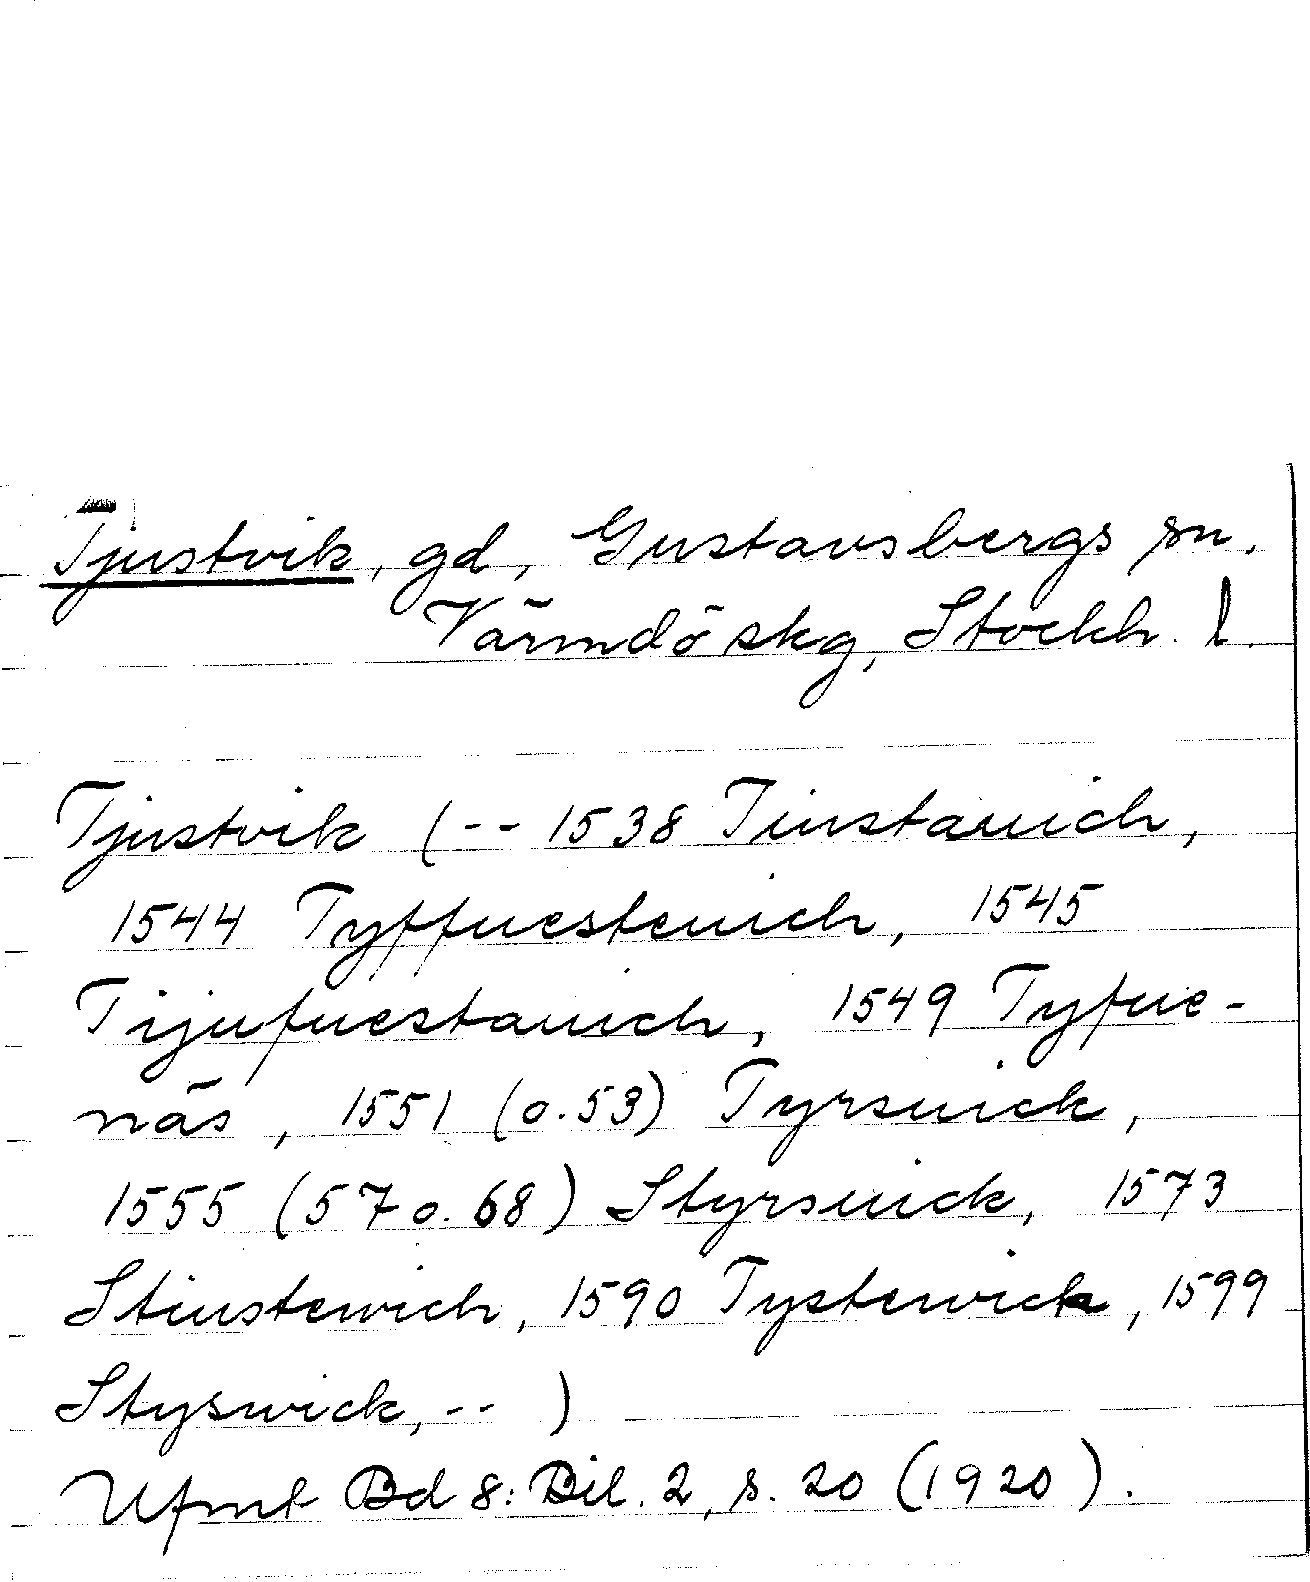 Tjustvik, gd, Gustavsbergs sn.
Värmdö skg, Stockh. l.
Tjustvik (-- 1538 Tiustauich,
1544 Tyffuesteuich, 1545
Tijufuestauich, 1549 Tyfue-
näs, 1551 (o. 53) Tyrsuick,
1555 (57 o. 68) Styrsuick, 1573
Stiustewich, 1590 Tystewick, 1599
Styswick, -- )
Ufmt Bd 8: Bil. 2, s. 20 (1920).